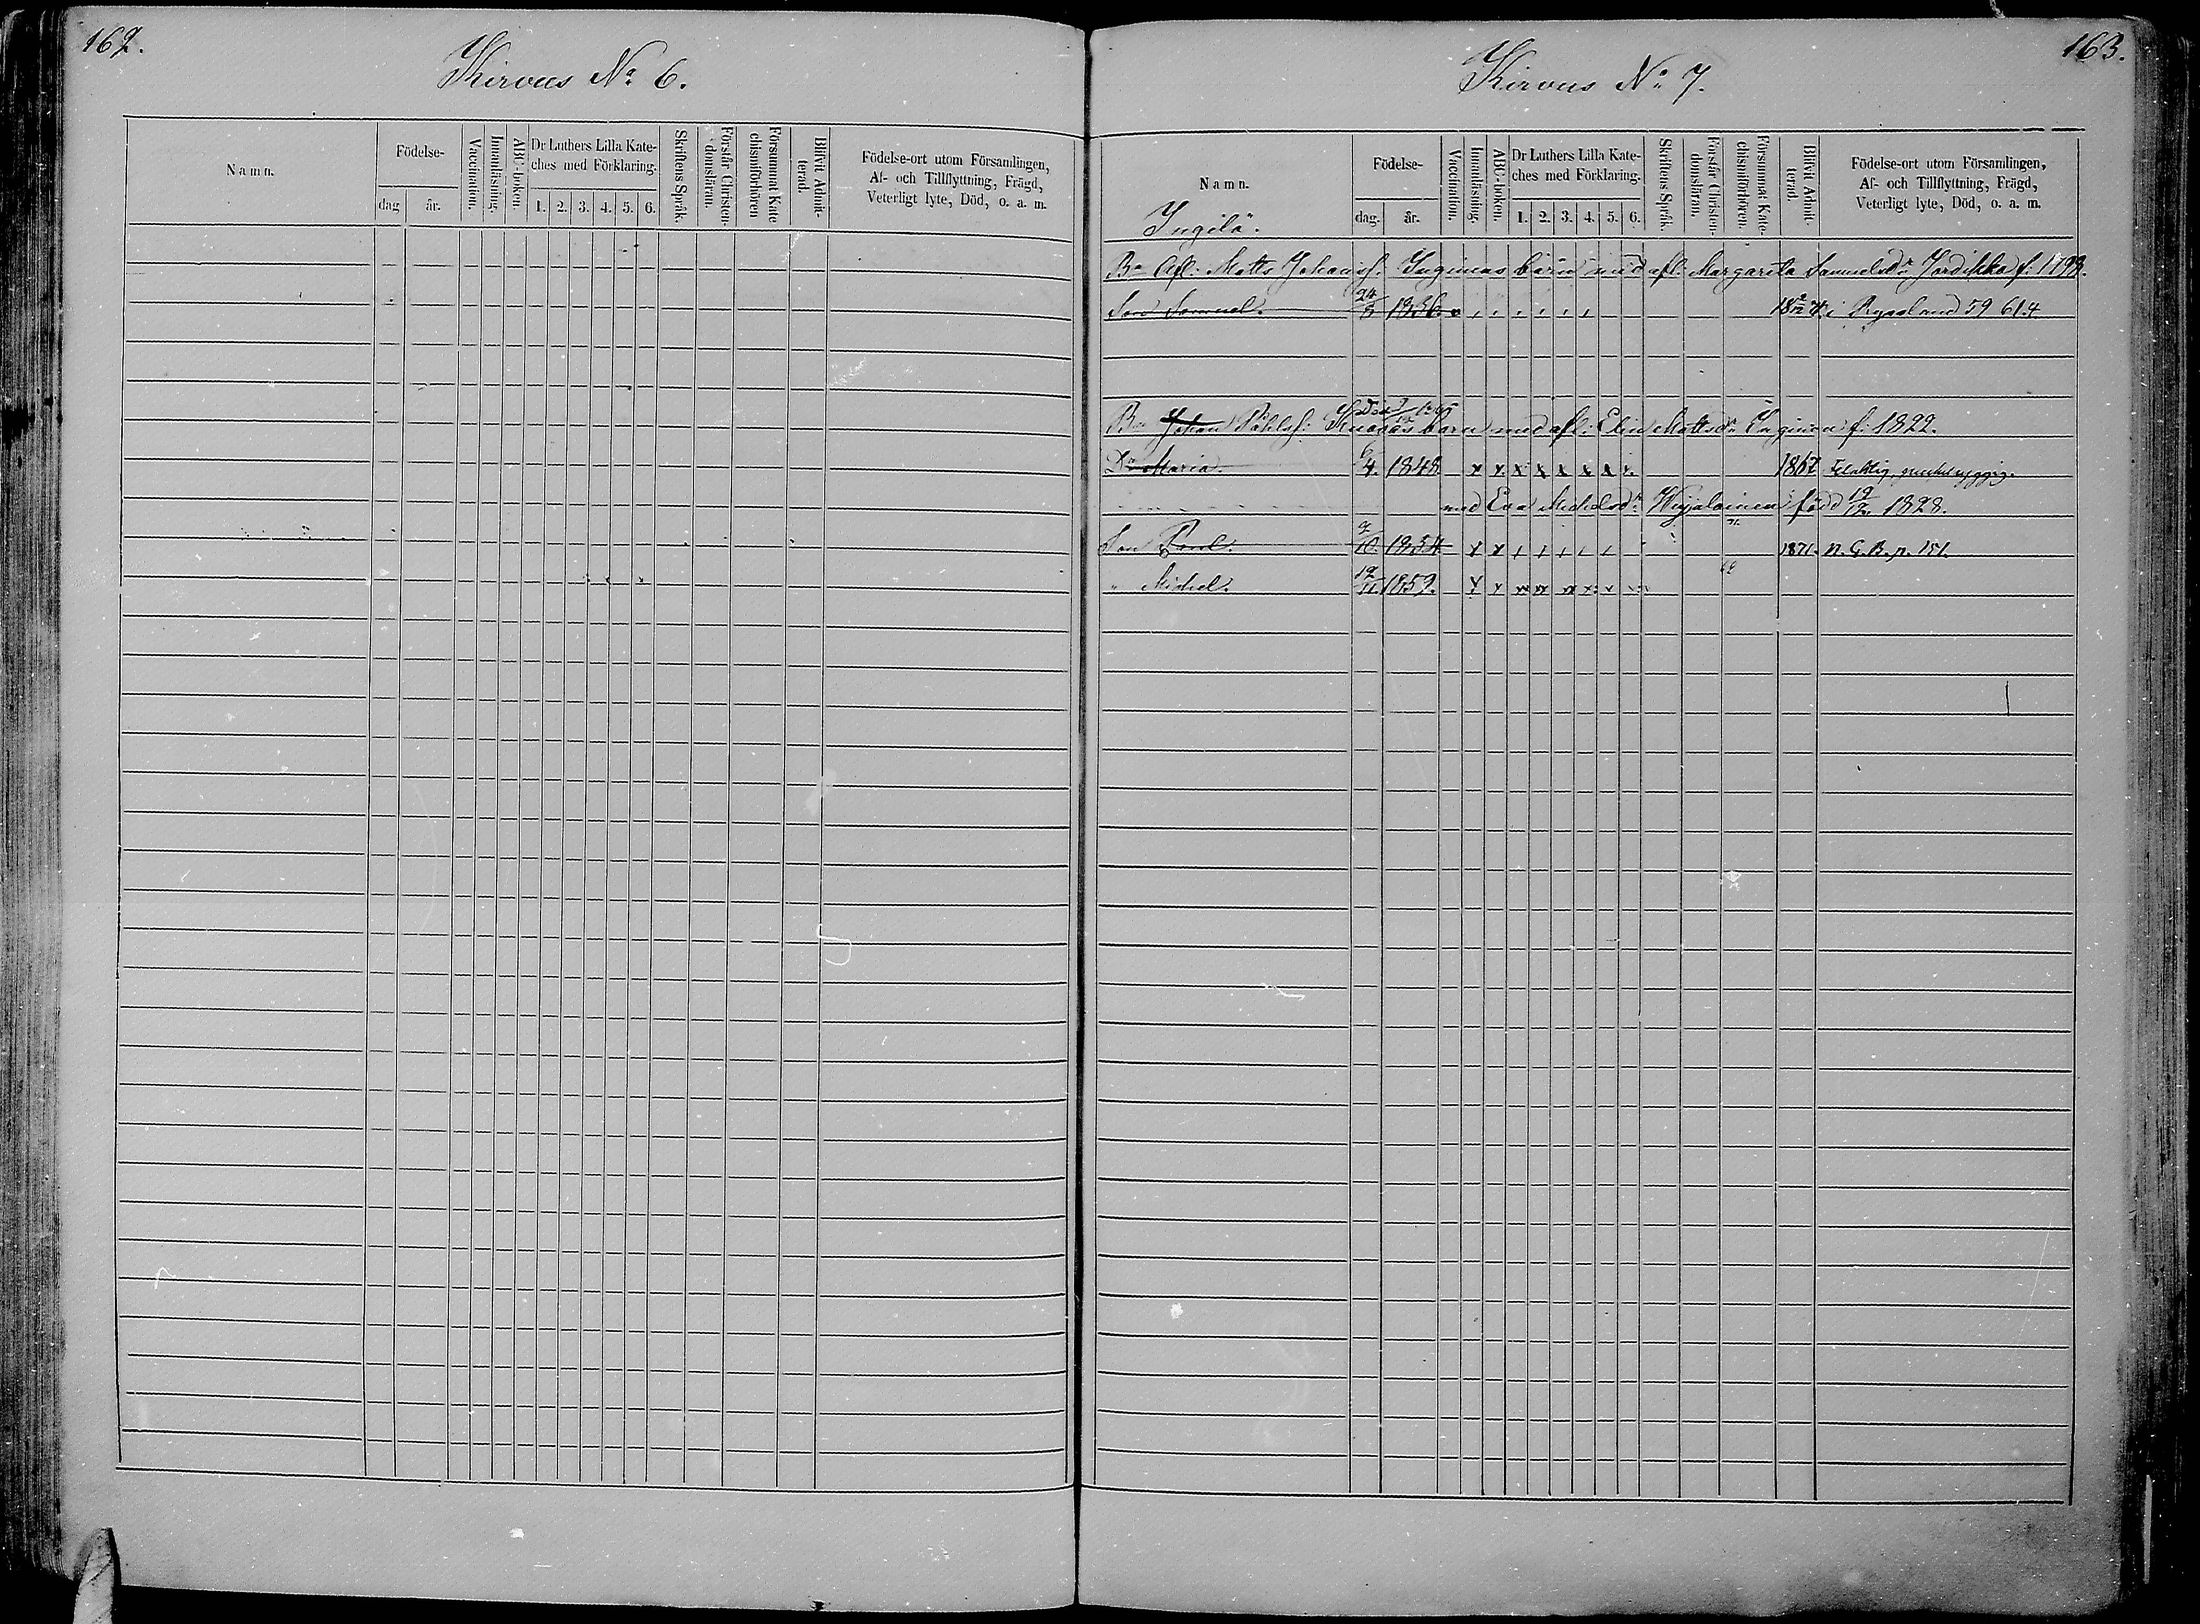 162.
Kirvus No 6.
Namn.
Födelse-
dag
år.
Vaccination.
Innanläsning.
ABC-boken.
Dr Luthers Lilla Kate-
ches med Förklaring.
1. 2. 3. 4. 5. 6.
Skriftens Språk.
Förstår Christen-
domsläran.
Försummat Kate
chismiförhören
Blifvit Admit-
terad.
Födelse-ort utom Församlingen,
Af- och Tillflyttning, Frägd,
Veterligt lyte, Död, o. a. m.
163.
Kirvus No 7.
Namn.
Ingilä.
Födelse-
dag.
år.
Vaccination.
Innanläsning.
ABC-boken.
Dr Luthers Lilla Kate-
ches med Förklaring.
1. 2. 3. 4. 5. 6.
Skriftens Språk.
Förstår Christen-
domsläran.
Försummat Kate-
chismiförhören.
Blifvit Admit-
terad.
Födelse-ort utom Församlingen,
Af- och Tillflyttning, Frägd,
Veterligt lyte, Död, o. a. m.
Bn Afl: Matts Johansf: Inginens barn med afl: Margareta Samuelsdr Jordikka f: 1798.
Son Samuel. 24/8 1836. i Ryssland 59 61.4
Bn Johan Påhlsf: barn med afl: Elin Mattsdr Inginen f: 1822.
Dr Maria. 6/4. 1848 x x x x x x x 1867
med Eva Michelsdr född 19/12 1828.
Son Paul. 9/10. 1854 x x 1871. n. C. B. p. 151.
" Michel. 12/11. 1859.